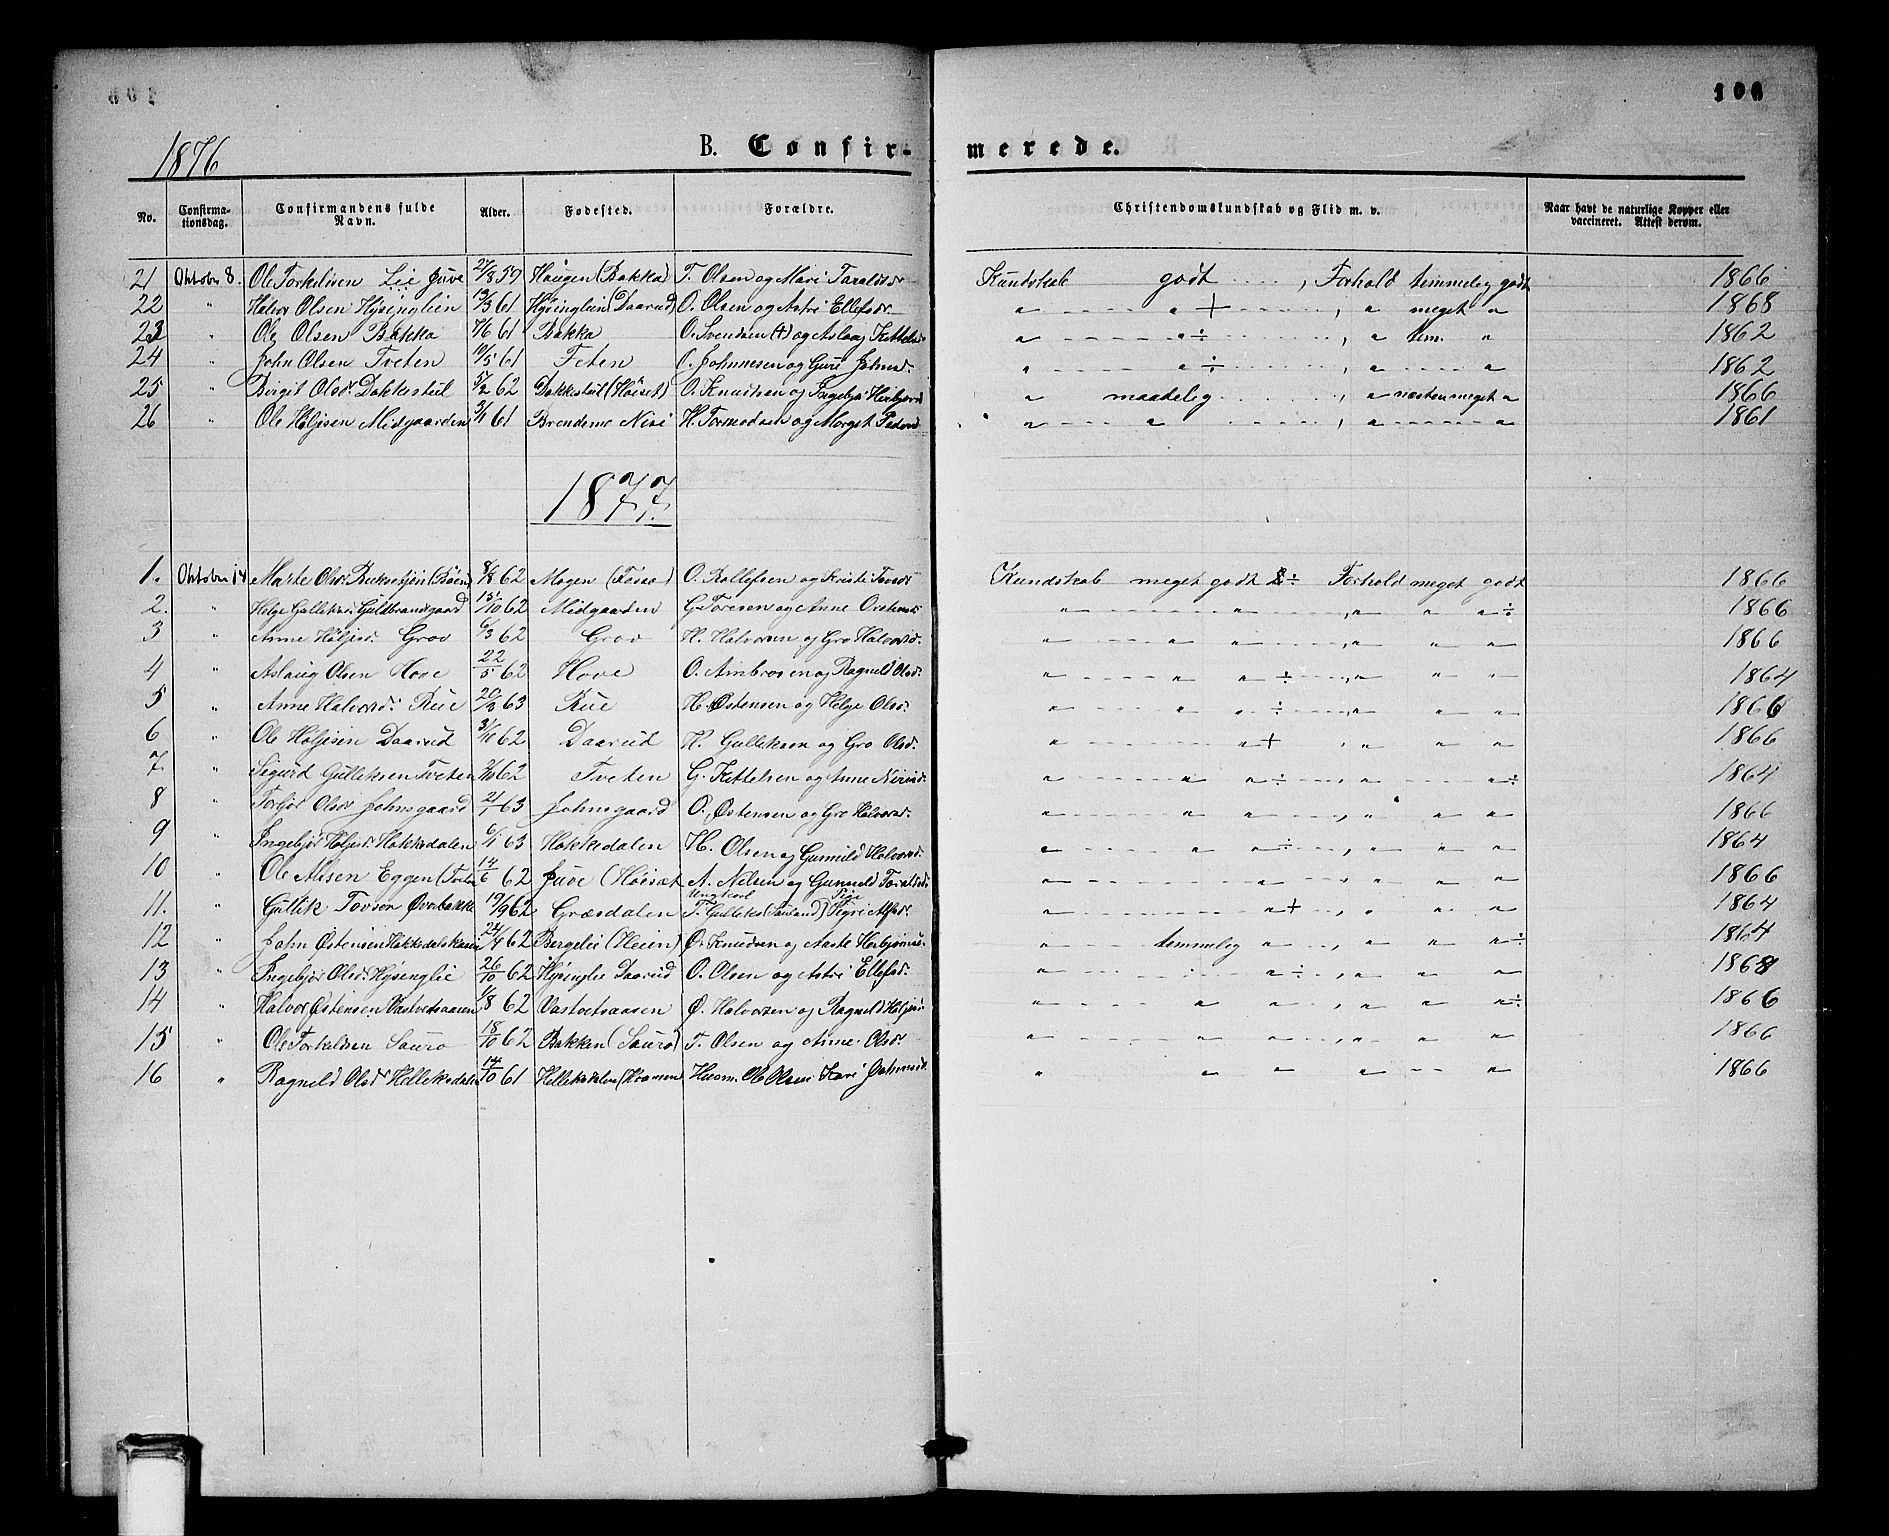 100
1876
B. Confir-
merede.
No. Confirma-tionsdag. Confirmandens fulde Navn. Alder. Fødested. Forældre. Christendomskundskab og Flid m. v. Naar havt de naturlige Kopper eller vaccineret. Attest derom.
21 Oktober 8. Ole Torkelsen Lie Juve 27/8 59 Haugen (Bakka) T. Olsen og Mari Taraldsdr Kundskab godt , Forhold temmelig godt 1866
22 " Halvor Olsen Hysinglien 13/3 61 Hysinglien (Daarud) O. Olsen og Astri Ellefsdr " " + , " meget " 1868
23 " Ole Olsen Bakka 7/6 61 Bakka O. Svendsen (+) og Aslaug Kittelsd. " " ÷ , " tem. " 1862
24 " John Olsen Tveten 19/5 61 Teten O. Johnnesen og Guri Johnsd. " " ÷ , " " 1862
25 " Birgit Olsdr Dokkesteil 5/2 62 Dokkesteil (Höiset) O. Knudsen og Ingebjør Herbjørnsd " maadelig , " næsten meget " 1866
26 " Ole Høljesen Midgaarden 2/1 61 Brenderne Nisi H. Tormodsen og Morget Pedersd " " , " " " 1861
1877.
1. Oktober 14 Marte Olsdr Buknesjøn (Böen) 8/8 62 Mogen (Fosso) O. Rollefsen og Kristi Tovsdr Kundskab meget godt ÷ Forhold meget godt 1866
2. " Helge Gulleksd. Guldbrandsgaard 15/10 62 Midgaarden G. Toresen og Anne Ostensd. " " " , " " " ÷ 1866
3 " Anne Høljesd. Grov 6/3 62 Grov H. Halvorsen og Gro Halvorsd. " " " , " " " 1866
4 " Aslaug Olsen Hove 22/5 62 Hove O. Ambrosen og Ragnild Olsd. " " " ÷ , " " " 1864
5 " Anne Halvorsd. Rue 20/2 63 Rue H. Østensen og Helge Olsd. " " " ÷ , " " " 1866
6 " Ole Høljesen Daarud 3/10 62 Daarud H. Gulleksen og Gro Olsd. " " + , " " " 1866
7. " Sigurd Gulleksen Tveten 2/10 62 Tveten G. Kittelsen og Anne Nirisd. " " " ÷ , " " ÷ 1864
8 " Torbjør Olsdr Johnsgaard 21/1 63 Johnsgaard O. Østensen og Gro Halvorsd. " " " , " " " 1866
9 " Ingebjør Høljesd. Hakkedalen 6/1 63 Hakkedalen H. Olsen og Gunnild Halvorsd. " " " ÷ , " " " 1864
10 " Ole Alisen Eggen 14/6 62 Juve (Höisæt A. Nilsen og Gunnild Taraldsd. " " " , " " " 1866
11. " Gullik Tovson Øverbakke 19/9 62 Græsdalen Ungkarl T. Gulleks (Sauland) Pige Sigri Alfsd. " " + , " " " 1864
12 " John Østensen Hakkedalskaas 24/4 62 Bergelie (Heien) Ø. Knudsen og Aaste Herbjørnsd. " temmelig " , " " " ÷ 1864
13 " Ingebjør Olsd. Hysinglie 26/10 62 Hysinglie Daarud O. Olsen og Astri Ellefsd. " " ÷ , " " " 1868
14 " Halvor Østensen Vastveitaasen 1/8 62 Vastveitaasen Ø. Halvorsen og Ragnild Høljesd. " " " , " " " ÷ 1866
15 " Ole Torkeldsen Sauro 18/10 62 Bakken (Sauro) T. Olsen og Anne Olsd. " " " , " " " 1866
16 " Ragnild Olsd Helleksdalen 14/10 61 Helleksdalen (Hvamen Husm. Ole Olsen Kari Johnsd. " " " " " " 1866